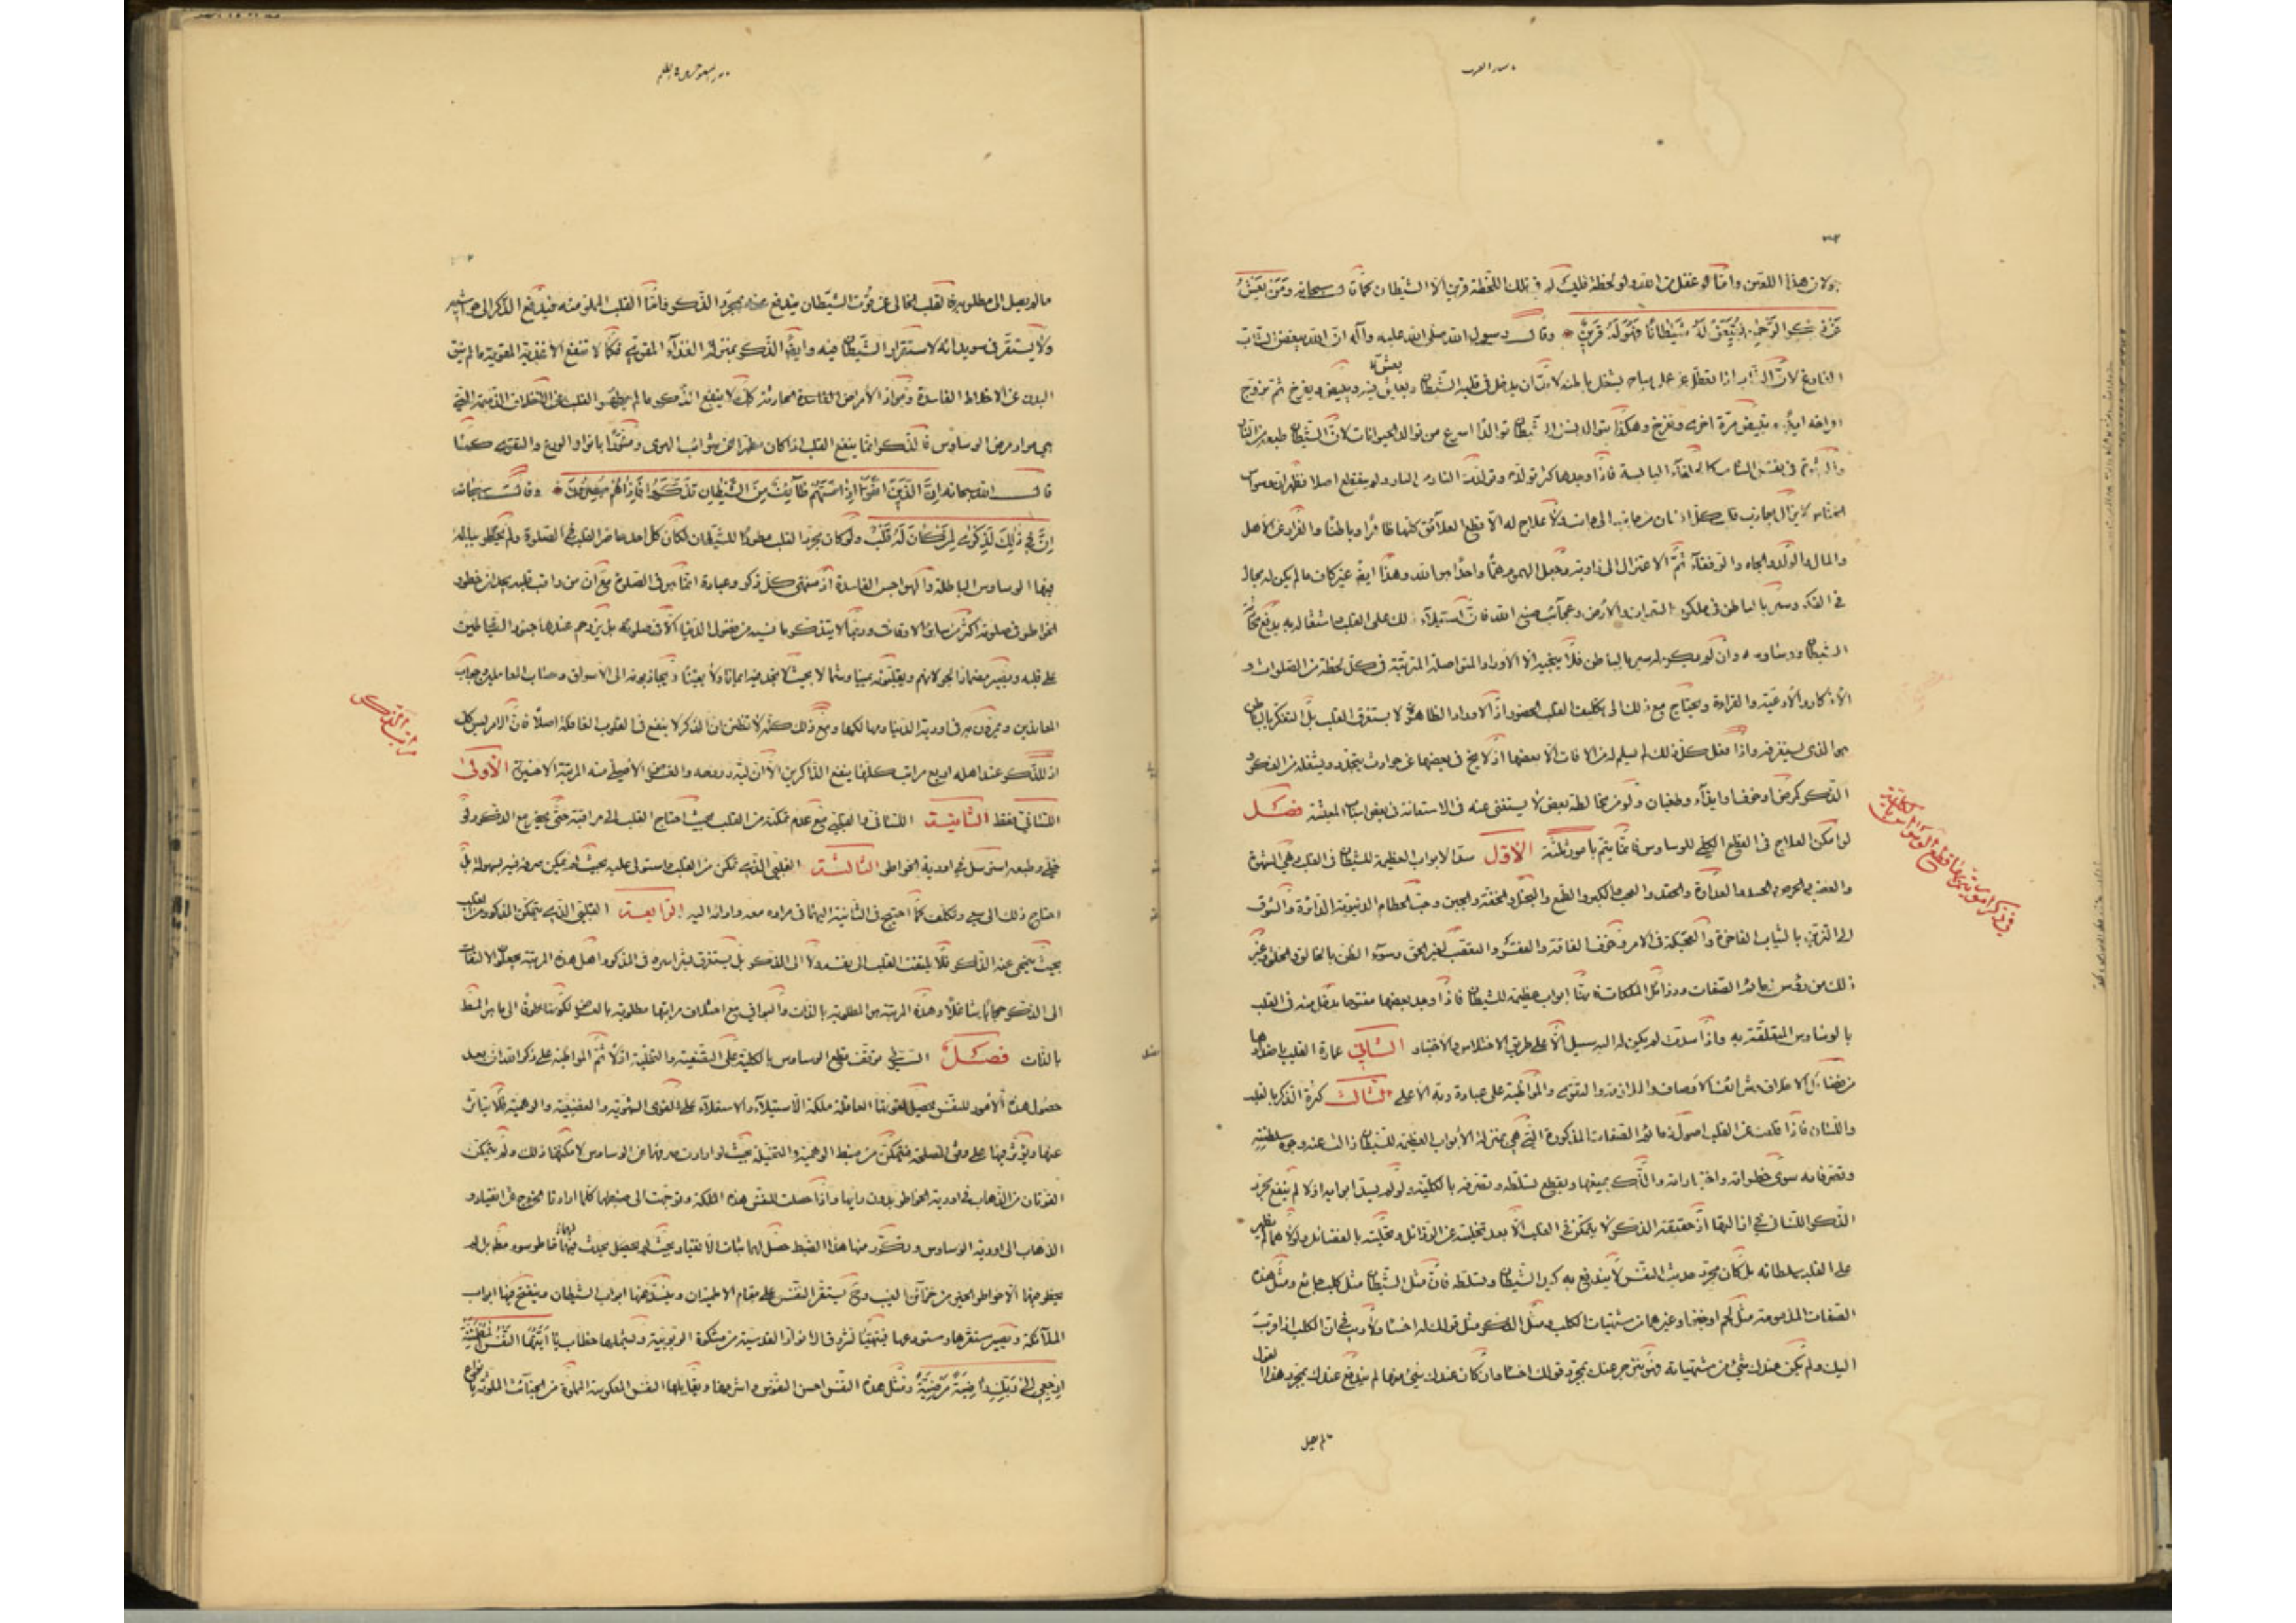 جولان هذا اللعين واما لو غفل عن الله ولو لحظة فليس له في تلك اللحظة قرين الا الشيطان كما قال سبحانه ومن يعش
عن ذكر الرحمن نقيض له شيطانا فهو له قرين وقال رسول الله صلى الله عليه وآله ان الله يبغض الشاب
الفارغ لان الشاب اذا تعطل عن عمل مباح يشغل باطنه لابد ان يدخل في قلبه الشيطان ويعيش فيه ويبيض ويفرخ ثم تزدوج
افراخه ايضا وتبيض مرة اخرى وتفرخ وهكذا يتوالد نسل الشيطان توالدا اسرع من توالد الحيوانات لان الشيطان طبعه من النار
والشهوة في نفس الشاب كالحلفاء اليابسة فاذا وجدها كثر تولده وتولدت النار من النار ولم ينقطع اصلا فظهر ان وسواس
الخناس لا يزال يجاذب قلب كل انسان من جانب الى جانب ولا علاج له الا قطع العلائق كلها ظاهرا وباطنا والفرار عن الاهل
والمال والولد والجاه والرفقاء ثم الاعتزال الى زاوية وجعل الهموم هما واحدا هو الله وهذا ايضا غير كاف ما لم يكن له مجال
في الفكر وسير بالباطن في ملكوت السموات والارض وعجائب صنع الله فان استيلاء ذلك على القلب واشتغاله به يدفع مجاذبة
الشيطان ووساوسه وان لم يكن له سير بالباطن فلا ينجيه الا الاوراد المتواصلة المترتبة في كل لحظة من الصلوات و
الاذكار والادعية والقراءة ويحتاج مع ذلك الى تكليف القلب الحضور اذ الاوراد الظاهرة لا يستغرق القلب بل التفكر بالباطن
هو الذي يستغرقه واذا فعل كل ذلك لم يسلم له من الاوقات الا بعضها اذ لا يخ في بعضها عن حوادث يتجدد ويشغله عن الفكر و
الذكر كمرض او خوف او ايذاء وطغيان ولو من مخالطة بعض لا يستغنى عنه في الاستعانة في بعض اسباب المعيشة فصل
لو امكن العلاج في القطع الكلي للوساوس فانما يتم بامور ثلثة الاول سد الابواب العظيمة للشيطان في القلب وهي الشهوة
والغضب والحرص والحسد والعداوة والحقد والعجب والكبر والطمع والبخل والخفة والجبن وحب الحطام الدنيوية الداثرة والشوق
الى التزين بالثياب الفاخرة والعجلة في الامر وخوف الفاقة والفقر والتعصب لغير الحق وسوء الظن بالخالق والخلق وغير
ذلك من رؤس ذمائم الصفات ورذائل الملكات فانها ابواب عظيمة للشيطان فاذا وجد بعضها مفتوحا يدخل منه في القلب
بالوساوس المتعلقة به واذا سدت لم يكن له اليه سبيل الا على طريق الاختلاس والاجتياز الثاني عمارة القلب باضدادها
من فضائل الاخلاق وشرائف الاوصاف والملازمة والتقوى والمواظبة على عبادة ربه الاعلى الثالث كثرة الذكر بالقلب
واللسان فاذا قلعت عن القلب اصول ذمائم الصفات المذكورة التي هي بمنزلة الابواب العظيمة للشيطان زالت عنه وجوه سلطنته
وتصرفاته سوى خطراته واجتيازاته والذكر يمنعها ويقطع تسلطه وتصرفه بالكلية ولو لم يسد ابوابه اولا لم ينفع مجرد
الذكر اللساني في ازالتها اذ حقيقة الذكر لا يتمكن في القلب الا بعد تخليته عن الرذائل وتحليته بالفضائل ولولاهما لم يظهر
على القلب سلطانه بل كان مجرد حديث النفس لا يندفع به كيد الشيطان وتسلطه فان مثل الشيطان مثل كلب جائع ومثل هذه
الصفات المذمومة مثل لحم او خبز او غيرهما من مشتهيات الكلب ومثل الذكر مثل قولك له اخسأ ولا ريب في ان الكلب اذا قرب
اليك ولم يكن عندك شئ من مشتهياته فهو ينزجر عنك بمجرد قولك اخسأ وان كان عندك شئ منها لم يندفع عنك بمجرد هذا القول
ما لم يصل
في ذكر امور يتم بها قطع الوسواس بالكلية
ما لم يصل الى مطلوبه فالقلب الخالي عن قوت الشيطان يندفع عنه بمجرد الذكر واما القلب المملو منه فيدفع الذكر الى حواشيه
ولا يستقر في سويدائه لاستقرار الشيطان فيه وايضا الذكر بمنزلة الغذاء المقوي فكما لا تنفع الاغذية المقوية ما لم ينق
البدن عن الاخلاط الفاسدة ومواد الامراض الفاسدة الحادثة كذلك لا ينفع الذكر ما لم يطهر القلب عن الاخلاق الذميمة التي
هي مواد مرض الوساوس فالذكر انما ينفع القلب اذا كان مطهرا عن شوائب الهوى ومنورا بانوار الورع والتقوى كما
قال الله سبحانه ان الذين اتقوا اذا مسهم طائف من الشيطان تذكروا فاذا هم مبصرون وقال سبحانه
ان في ذلك لذكرى لمن كان له قلب ولو كان مجرد القلب مطردا للشيطان لكان كل احد حاضر القلب في الصلوة ولم يخطر بباله
فيها الوساوس الباطلة والهواجس الفاسدة اذ منتهى كل ذكر وعبادة انما هو في الصلوة مع ان من راقب قلبه يجد ان خطور
الخواطر في صلوته اكثر من سائر الاوقات وربما لا يتذكر ما نسيه من فضول الدنيا الا في صلوته بل يزدحم عندها جنود الشياطين
على قلبه ويصير مضمارا لجولانهم ويقلبونه يمينا وشمالا بحيث لا يجد فيه ايمانا ولا يقينا ويجاذبونه الى الاسواق وحساب العاملين وجواب
المعاندين ويمرون به في اودية الدنيا ومهالكها ومع ذلك كله لا تظنن ان الذكر لا ينفع في القلوب الغافلة اصلا فان الامر ليس كك
اذ للذكر عند اهله اربع مراتب كلها ينفع الذاكرين الا ان لبه وروحه والغرض الاصلي منه المرتبة الاخيرة الاولى
اللساني فقط الثانية اللساني والقلبي مع عدم تمكنه من القلب بحيث احتاج القلب الى مراقبته حتى يحضر مع الذكر ولو
خلي وطبعه استرسل في اودية الخواطر الثالثة القلبي الذي تمكن من القلب واستولى عليه بحيث لم يمكن صرفه عنه بسهولة بل
احتاج ذلك الى سعي وتكلف كما احتيج في الثانية اليهما في قراره معه ودوامه اليه الرابعة القلبي الذي يتمكن المذكور من القلب
بحيث ينمحي عنه الذكر فلا يلتفت القلب الى نفسه ولا الى الذكر بل يستغرق بشراشره في المذكور واهل هذه المرتبة يجعلون الالتفات
الى الذكر حجابا شاغلا وهذه المرتبة هي المطلوبة بالذات والبواقي مع اختلاف مراتبها مطلوبة بالعرض لكونها طرقا الى ما هو المطلوب
بالذات فصل السر في توقف قطع الوساوس بالكلية على التصفية والتخلية اولا ثم المواظبة على ذكر الله ان بعد
حصول هذه الامور للنفس يحصل لقوتها العاقلة ملكة الاستيلاء والاستعلاء على القوى الشهوية والغضبية والوهمية فلا يتأثر
عنها ويؤثر فيها على وفق المصلحة فيتمكن من ضبط الوهمية والمتخيلة بحيث لو ارادت صرفهما عن الوساوس لامكنها ذلك ولم يتمكن
القوتان من الذهاب في اودية الخواطر بدون رأيها واذا حصلت للنفس هذه الملكة وتوجهت الى ضبطهما كلما ارادتا الخروج عن الانقياد و
الذهاب الى اودية الوساوس وتكرر منها هذا الضبط حصل لهما ثبات الانقياد بحيث لم يحصل يحدث فيهما خاطر سوء مطلقا بل لم
يخطر فيهما الا خواطر الخير من خزائن الغيب وح يستقر النفس على مقام الاطمينان وينسد عنها ابواب الشيطان وينفتح فيها ابواب
الملائكة ويصير مستقرها ومستودعها فيتهيأ لشروق الانوار القدسية من مشكوة الربوبية ويشملها خطاب يا ايتها النفس المطمئنة
ارجعي الى ربك راضية مرضية ومثل هذه النفس احسن النفوس واشرفها ويقابلها النفس المنكوسة المملوة من الخبائث الملوثة بانواع
مراتب الذكر